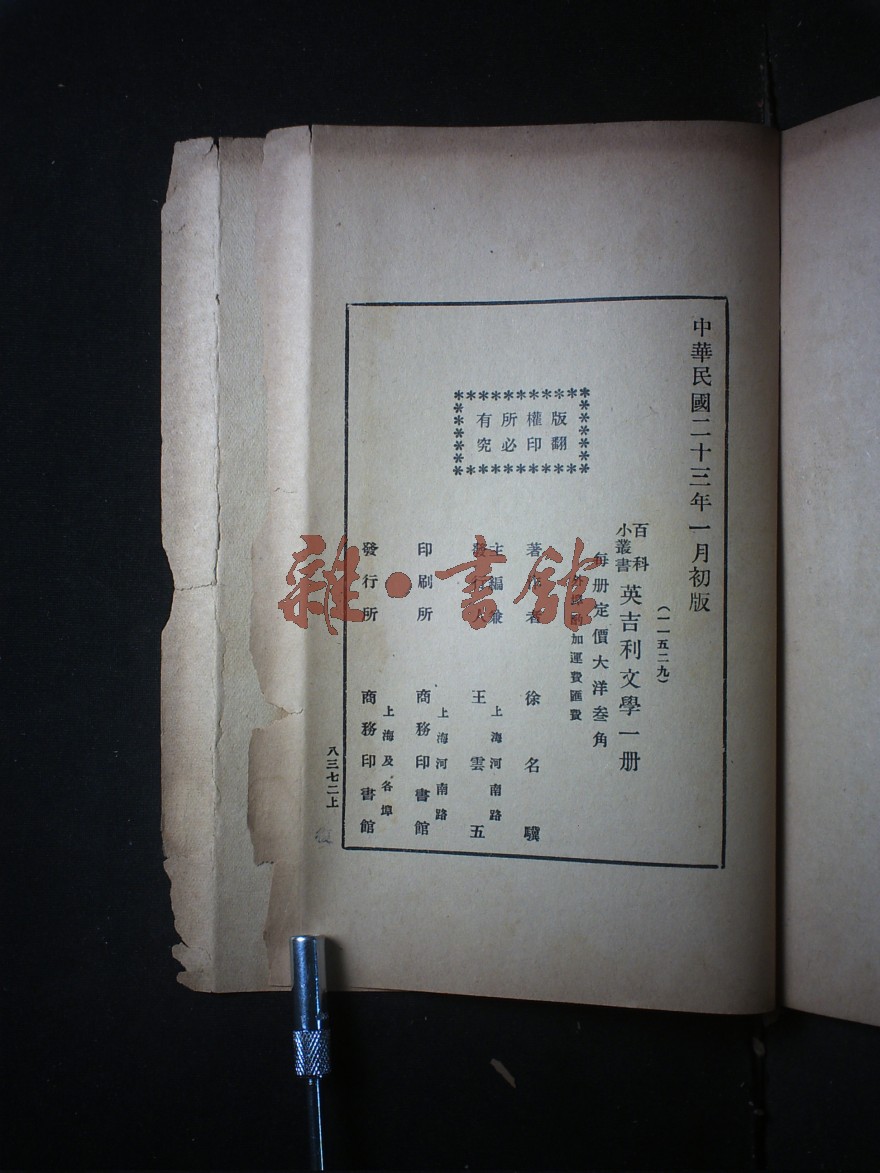 中華民國二十三年一月初版
(一一五二九)
百科
小叢書
英吉利文學一册
每册定價大洋叁角
外埠酌加運費匯費
版權所有
翻印必究
著作者 徐名驥
主編兼
發行人
上海河南路
王雲五
印刷所
上海河南路
商務印書館
發行所
上海及各埠
商務印書館
八三七二上
雜·書館